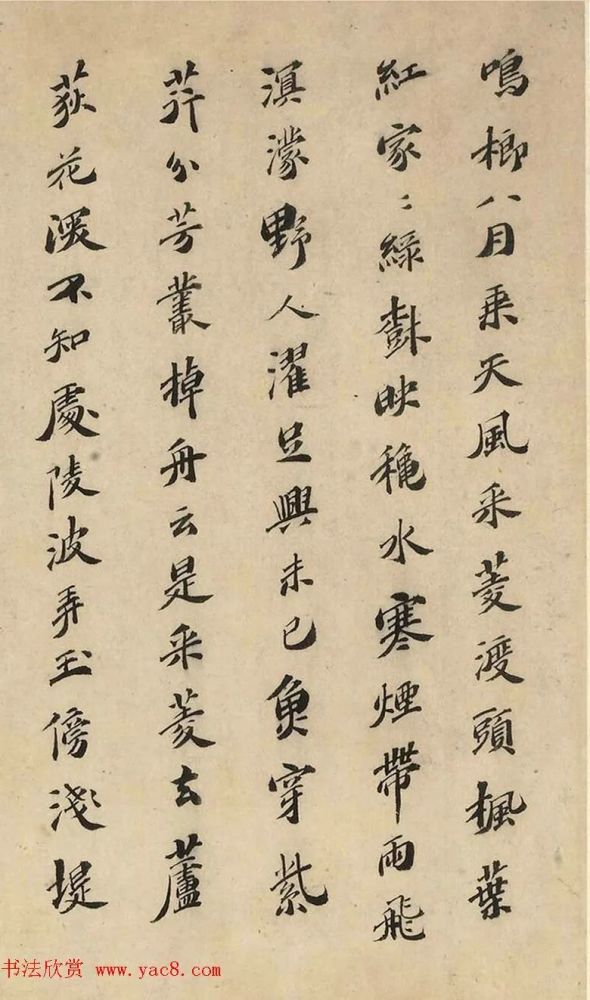 鳴榔八月乗天風采菱渡頭楓葉
紅家〻緑樹映穐水寒煙帶雨飛
溟濛野人濯足興未已魚穿紫
荇分芳叢棹舟云是采菱去蘆
荻花深不知處陵波弄玉傍淺堤
书法欣赏 www.yac8.com